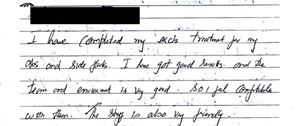 I have completed my excls treatment for my
abs and side flanks. I have got good results. and the
team and enviroment is very good. So I feel comfortable
with them. The stagg is also very friendly.